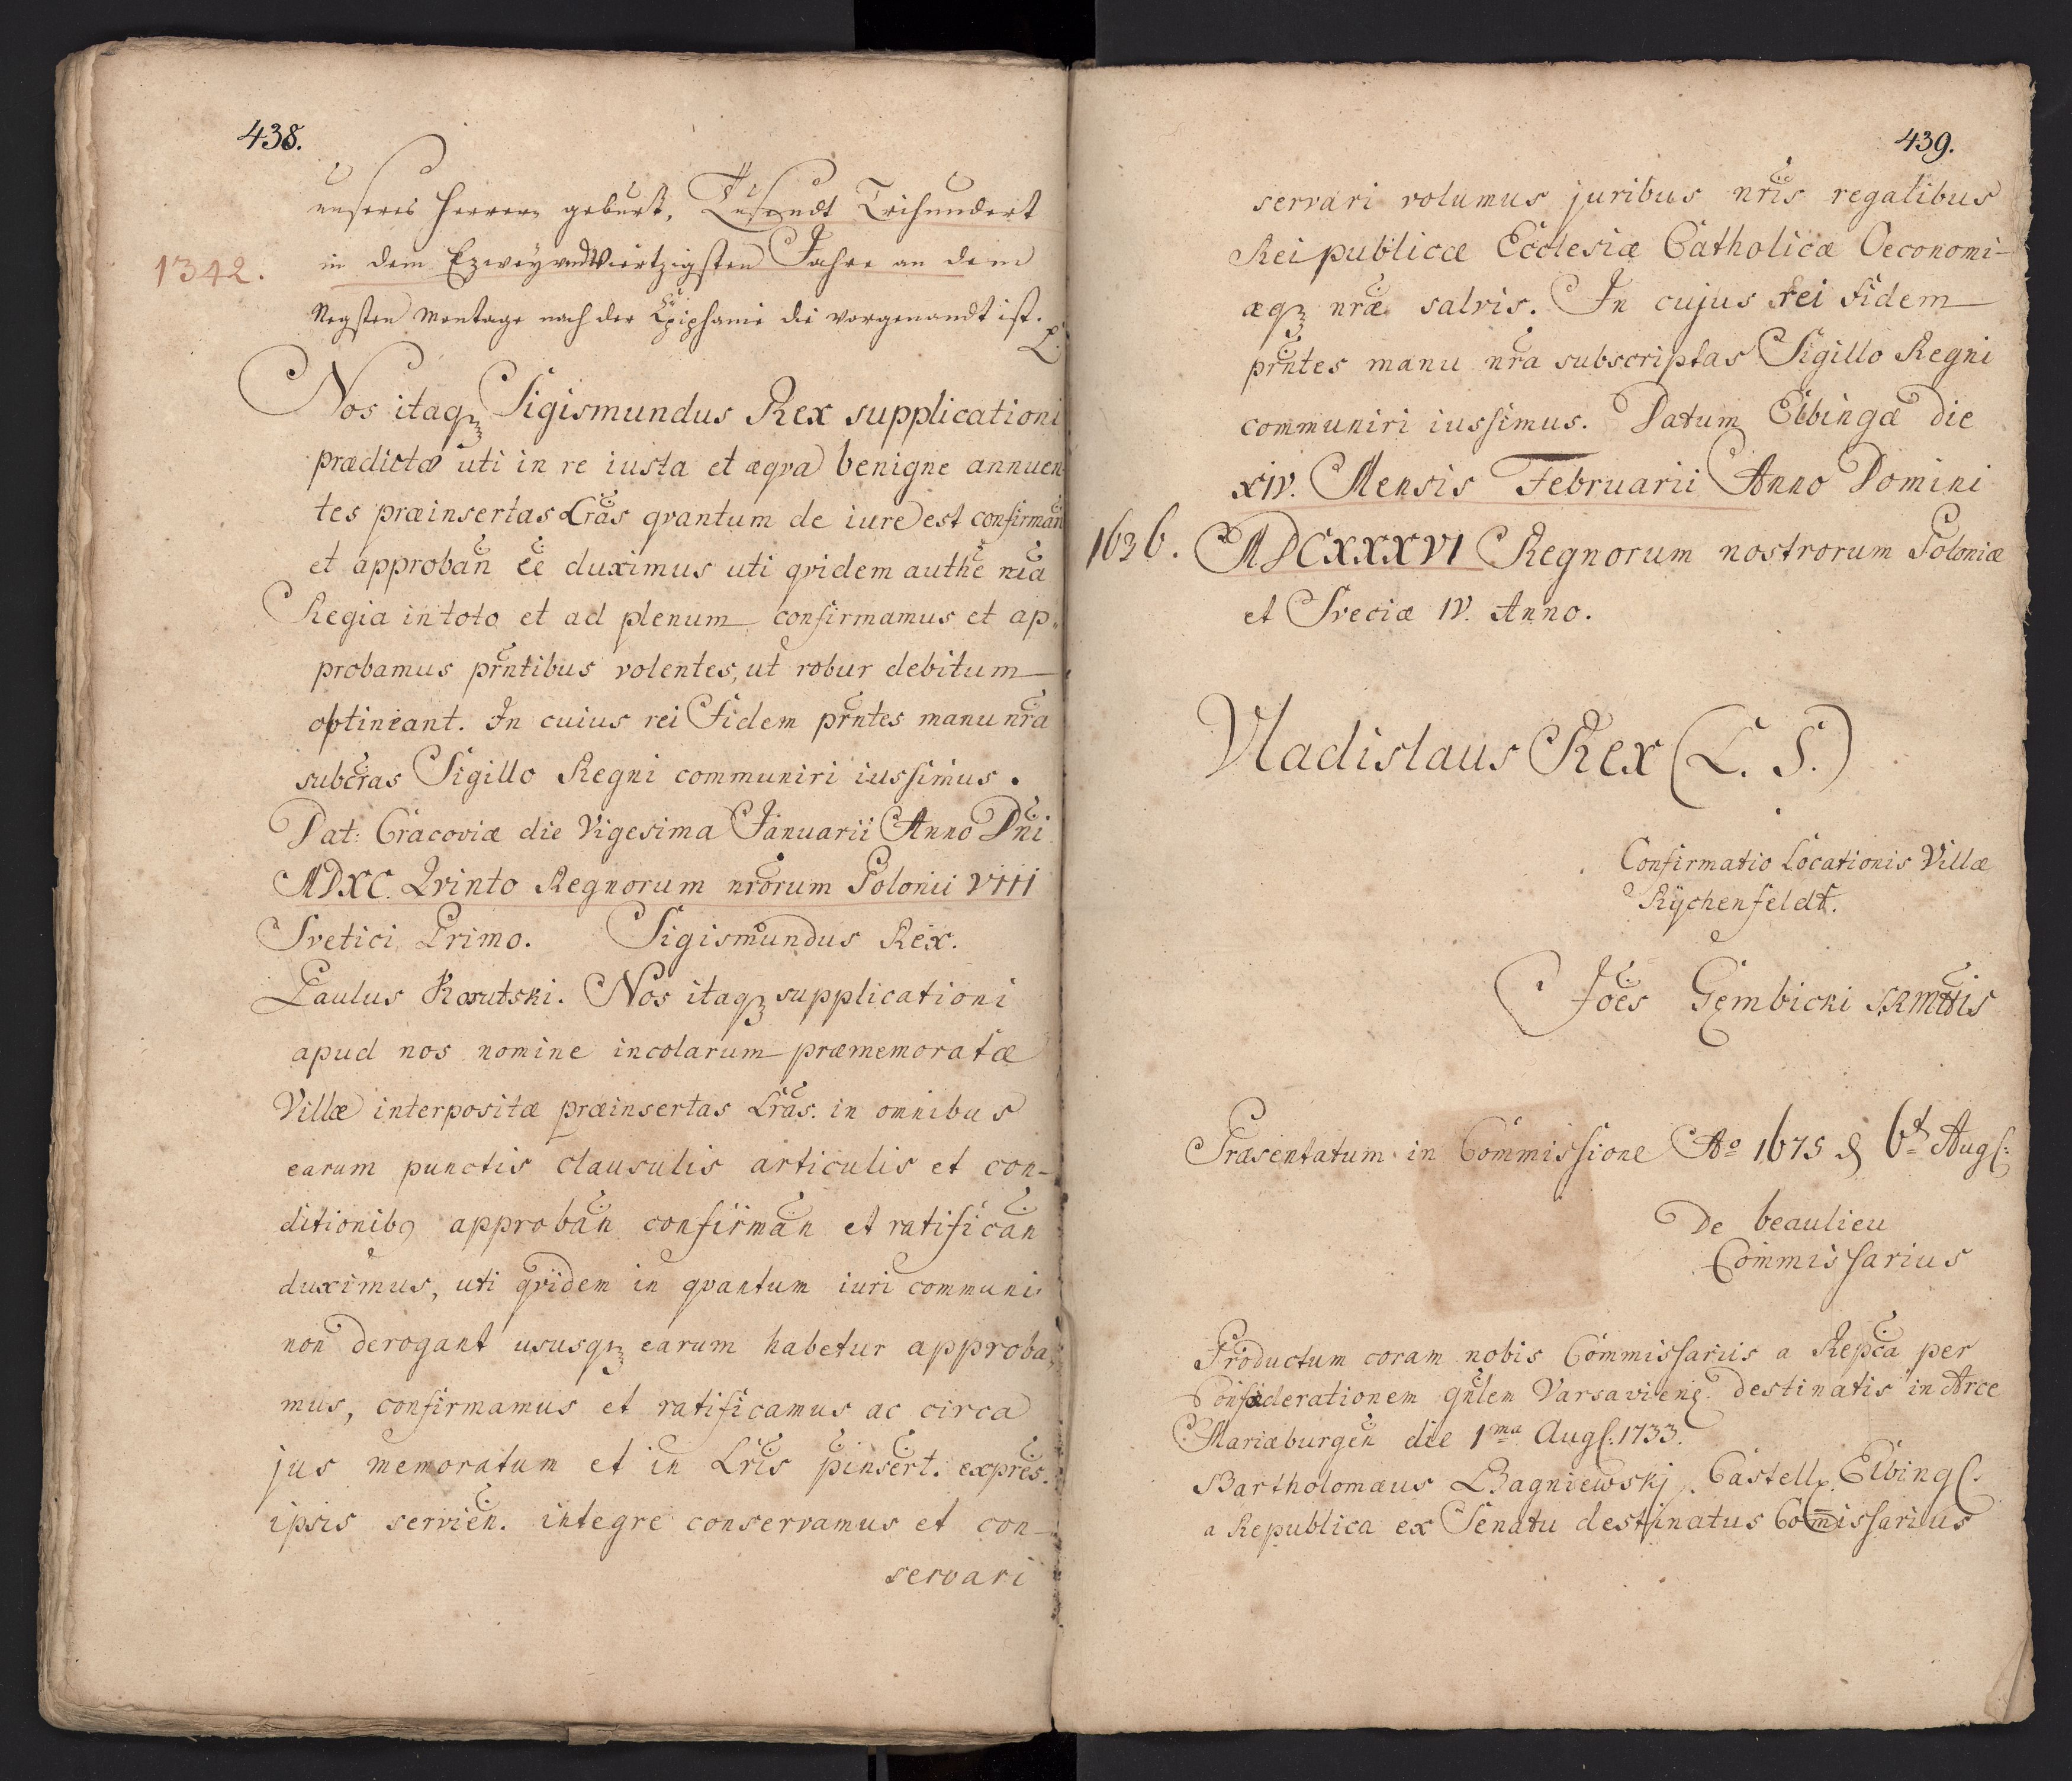 438.
unseres Herren geburt, Tusendt Drihundert
1342. in dem Ezweyundviertzigsten Jahre an dem
Negsten Montage nach der Epiphanie die vorgenandt ist.
Nos itaqȝ Sigismundus Rex supplicationi
prædictæ uti in re iusta et æqva benigne annuen
tes præinsertas Lras qvantum de iure est confirman
et approban ee duximus uti qvidem authe nra
Regia in toto et ad plenum confirmamus et ap„
probamus prntibus volentes, ut robur debitum
obtineant. In cuius rei Fidem prntes manu nra
subcras Sigillo Regni communiri iussimus.
Dat: Cracoviæ die Vigesima Januarii Anno Dni
MDXC Qvinto Regnorum nrorum Polonii VIII
Svetici Primo. Sigismundus Rex.
Paulus Koxutski. Nos itaqȝ supplicationi
apud nos nomine incolarum præmemoratæ
Villæ interpositæ præinsertas Lras. in omnibus
earum punctis clausulis articulis et con-
ditionibꝯ approban confirman et ratifican
duximus, uti qvidem in qvantum iuri communi
non derogant ususqȝ earum habetur approba„
mus, confirmamus et ratificamus ac circa
jus memoratum et in Lris pinsert. expres.
ipsis servien. integre conservamus et con-
servari
439.
servari volumus juribus nris regalibus
Reipublicæ Ecclesiæ Catholicæ Oeconomi-
æqȝ nræ salvis. In cujus rei fidem
prntes manu nra subscriptas Sigillo Regni
communiri iussimus. Datum Elbingæ die
XIV. Mensis Februarii Anno Domini
1636. MDCXXXVI Regnorum nostrorum Poloniæ
et Sveciæ IV. Anno.
Vladislaus Rex (L. S.)
Confirmatio Locationis Villæ
Rÿchenfeldt.
Joes Gembicki SRMttis
Præsentatum in Commissione Ao 1675 d 6t Augs:
De beaulieu
Commissarius
Productum coram nobis Commissariis a Repca per
Confæderationem gnlem Varsavienꝫ destinatis in Arce
Mariæburgen die 1ma Augs: 1733.
Bartholomæus Bagniewskj Castell. Elbings.
a Republica ex Senatu destinatus Commissarius